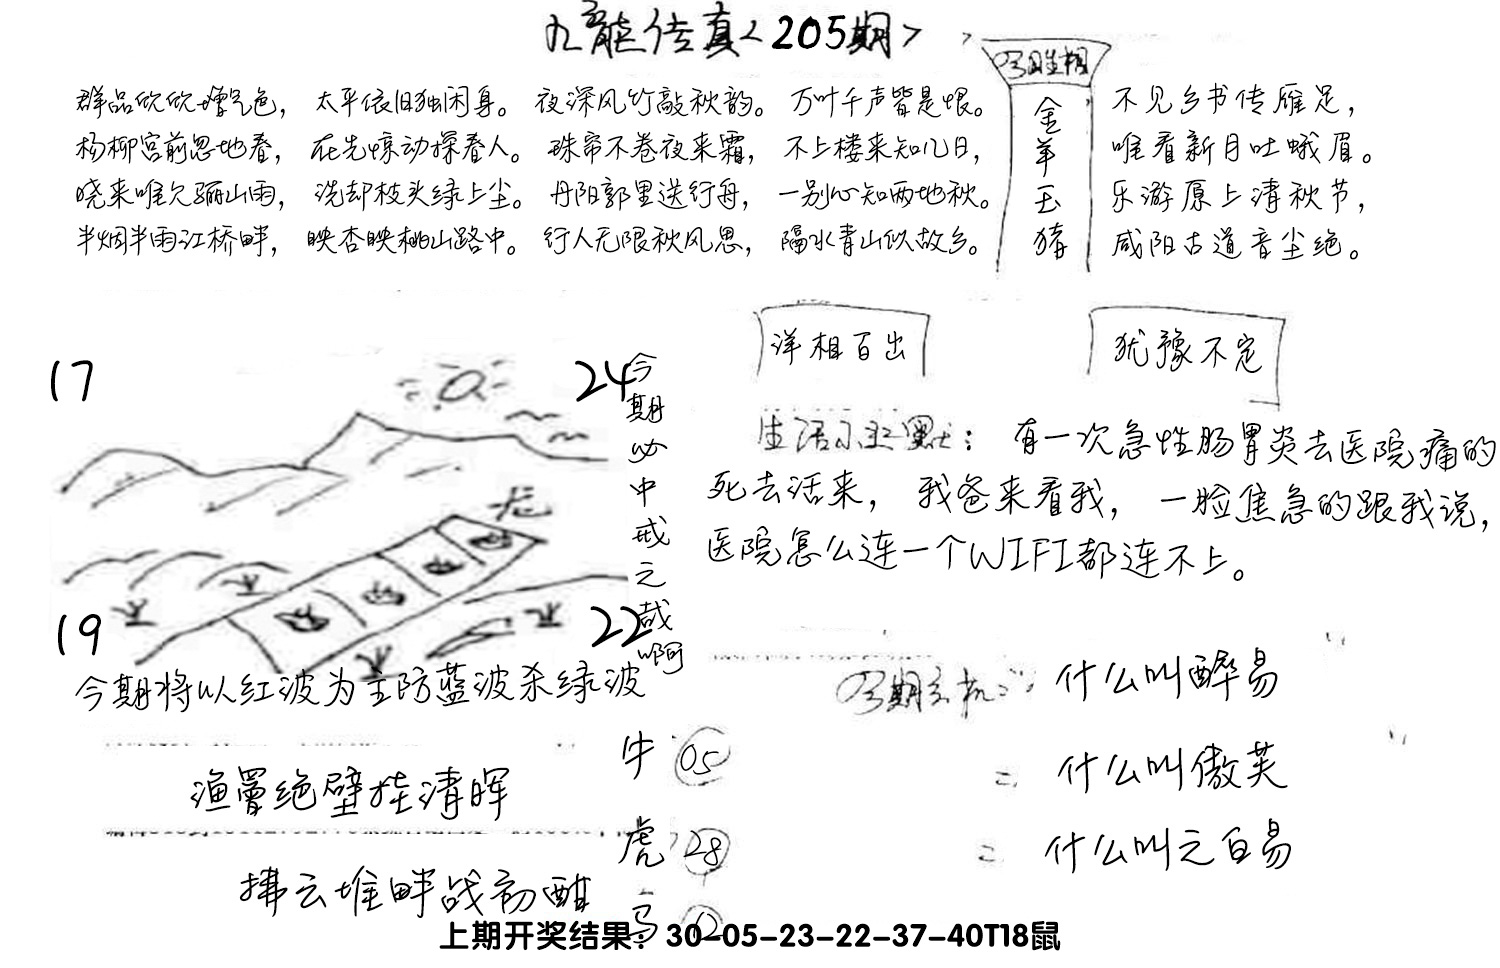 九龙传真<205期>
群品欣欣增气色， 太平依旧独闲身。 夜深风竹敲秋韵。 万叶千声皆是恨。
杨柳宫前忽地春， 在先惊动探春人。 珠帘不卷夜来霜， 不上楼来知几日，
晓来唯欠骊山雨， 洗却枝头绿上尘。 丹阳郭里送行舟， 一别心知两地秋。
半烟半雨江桥畔， 映杏映桃山路中。 行人无限秋风思， 隔水青山似故乡。
金羊玉猪
不见乡书传雁足，
唯看新月吐蛾眉。
乐游原上清秋节，
咸阳古道音尘绝。
洋相百出
犹豫不定
17
24
今期必中戒之哉啊
龙
19
22
今期将以红波为主防蓝波杀绿波
生活小幽默： 有一次急性肠胃炎去医院痛的
死去活来， 我爸来看我， 一脸焦急的跟我说，
医院怎么连一个WIFI都连不上。
今期玄机 什么叫醉易
二 什么叫傲芙
二 什么叫元白易
渔罾绝壁挂清晖
拂云堆畔战初酣
牛 05
虎 28
马 12
上期开奖结果：30-05-23-22-37-40T18鼠